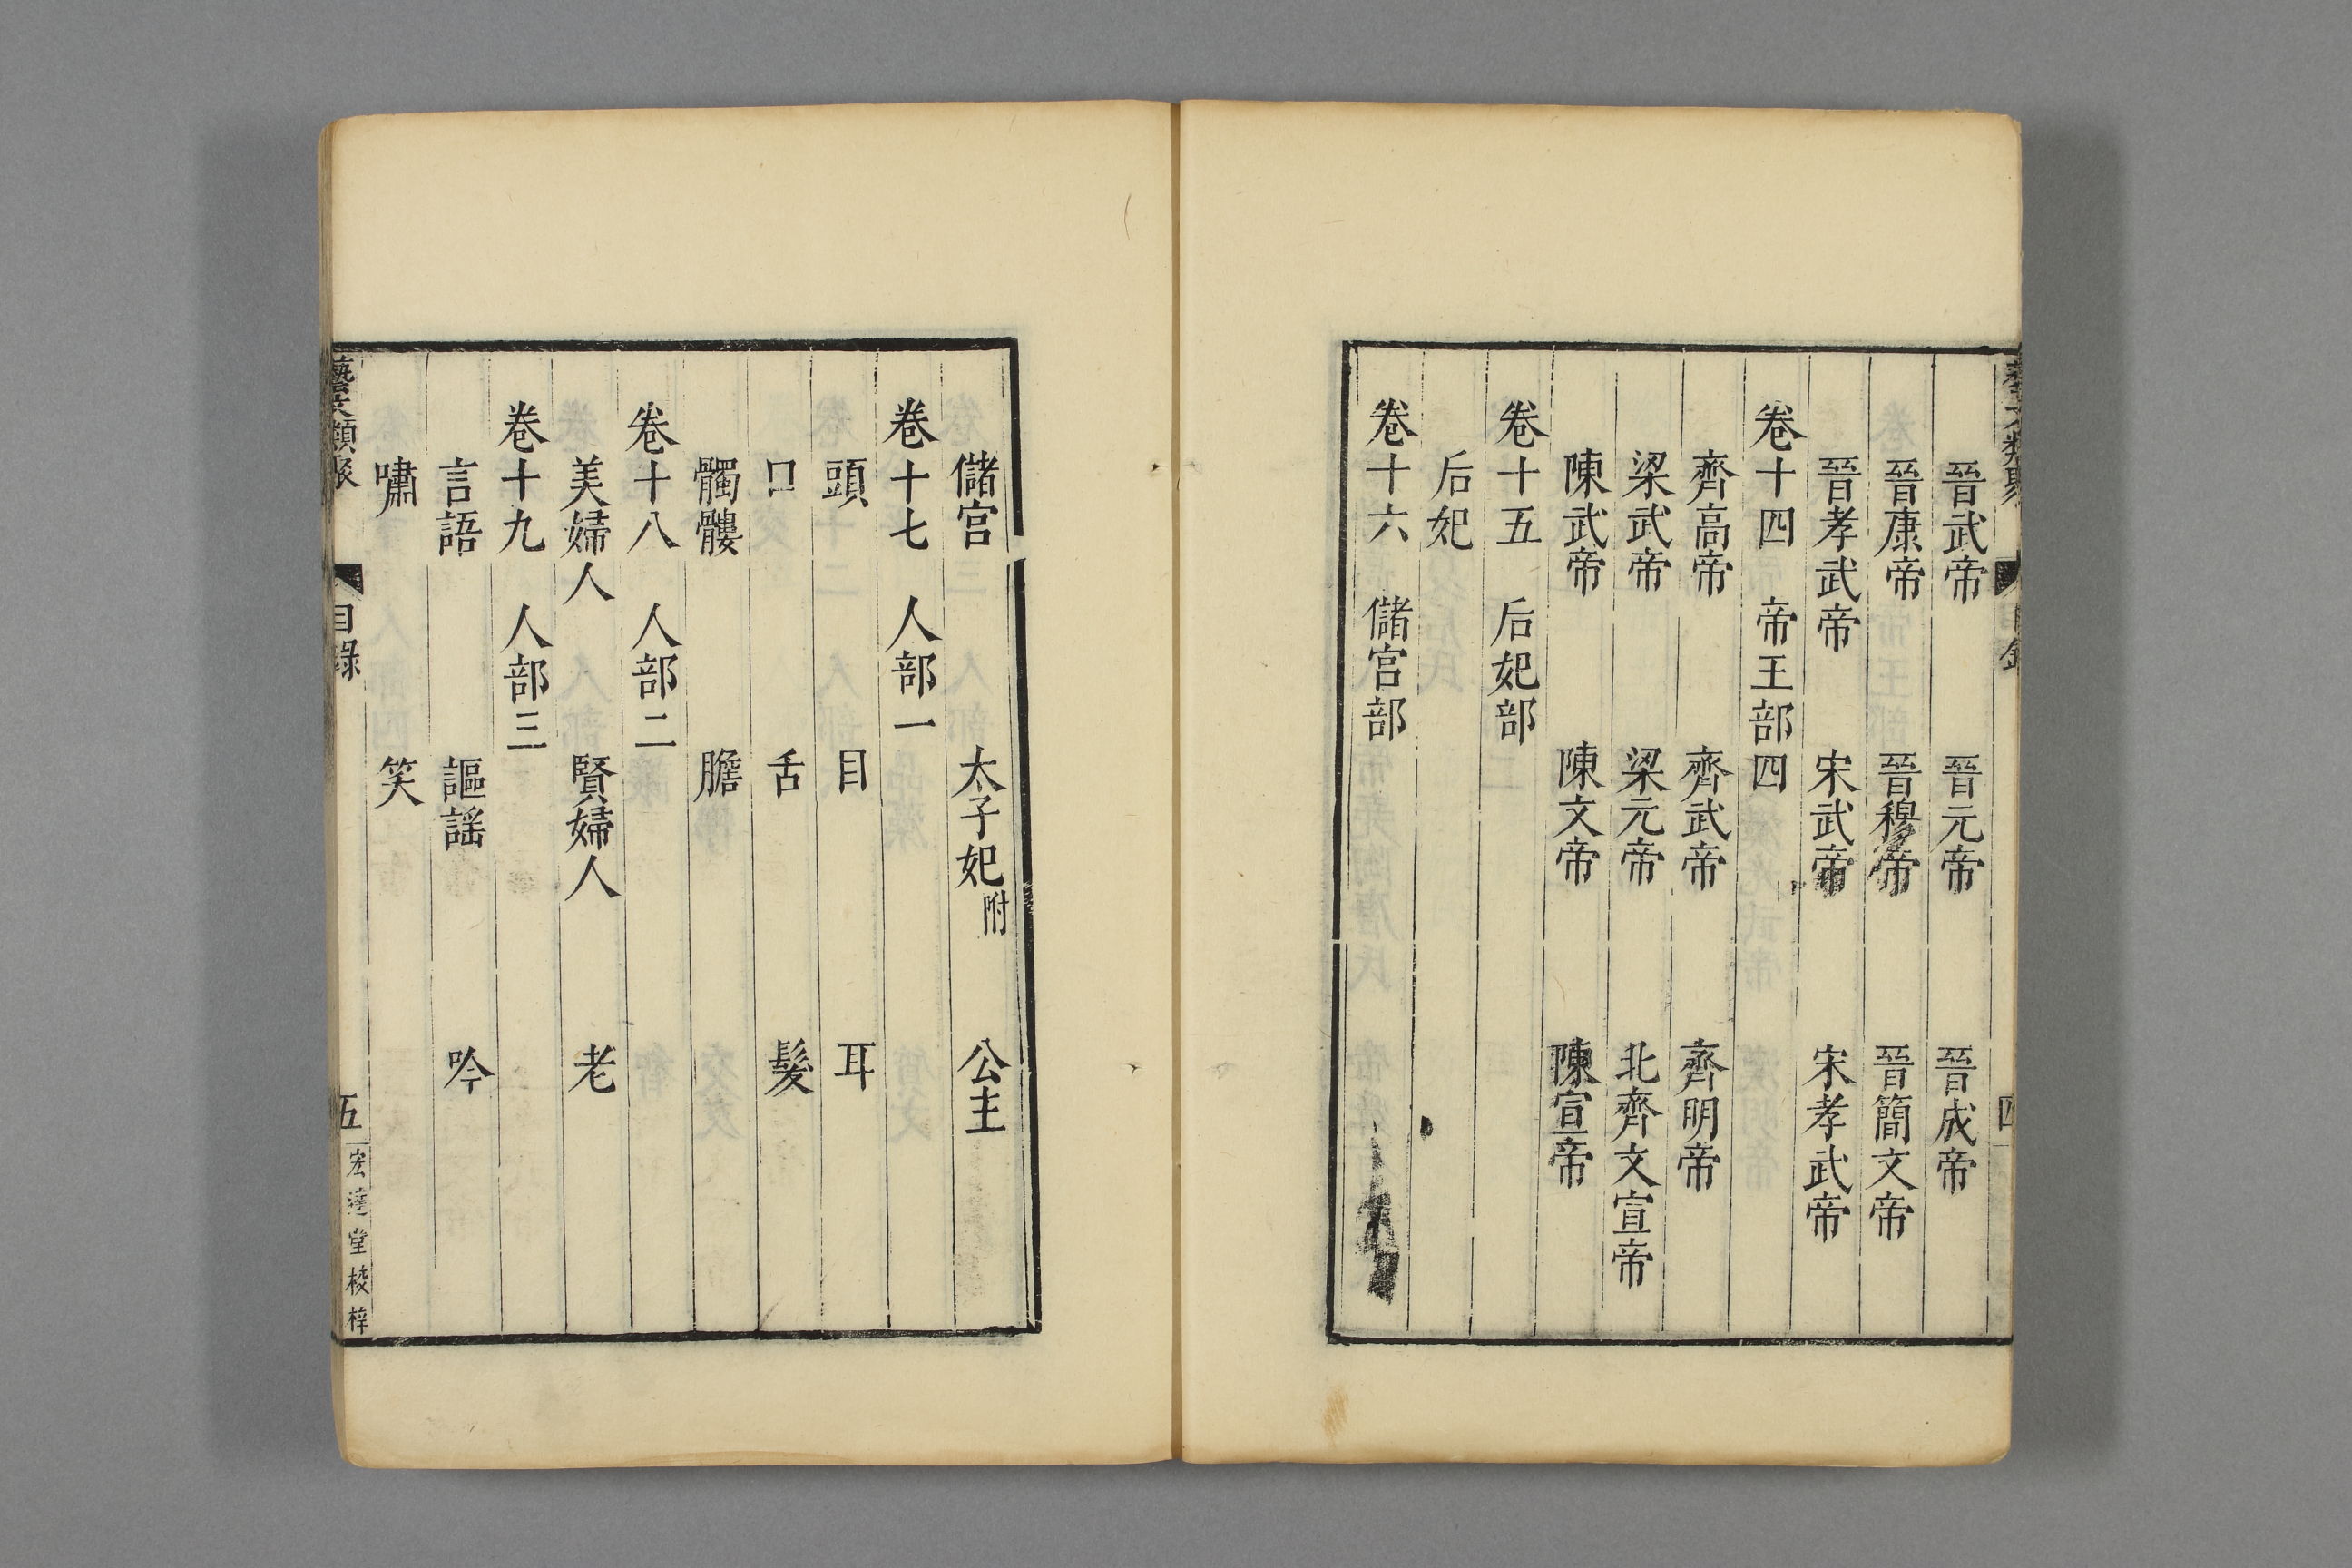 晉武帝　晉元帝　晉成帝
晉康帝　晉穆帝　晉簡文帝
晉孝武帝　宋武帝　宋孝武帝
卷十四　帝王部四
齊高帝　齊武帝　齊明帝
梁武帝　梁元帝　北齊文宣帝
陳武帝　陳文帝　陳宣帝
卷十五　后妃部
后妃
卷十六　儲宮部
儲宮　太子妃附　公主
卷十七　人部一
頭　目　耳
口　舌　髮
髑髏　膽
卷十八　人部二
美婦人　賢婦人　老
卷十九　人部三
言語　謳謡　吟
嘯　笑
藝文類聚　目錄　五　宏達堂校梓